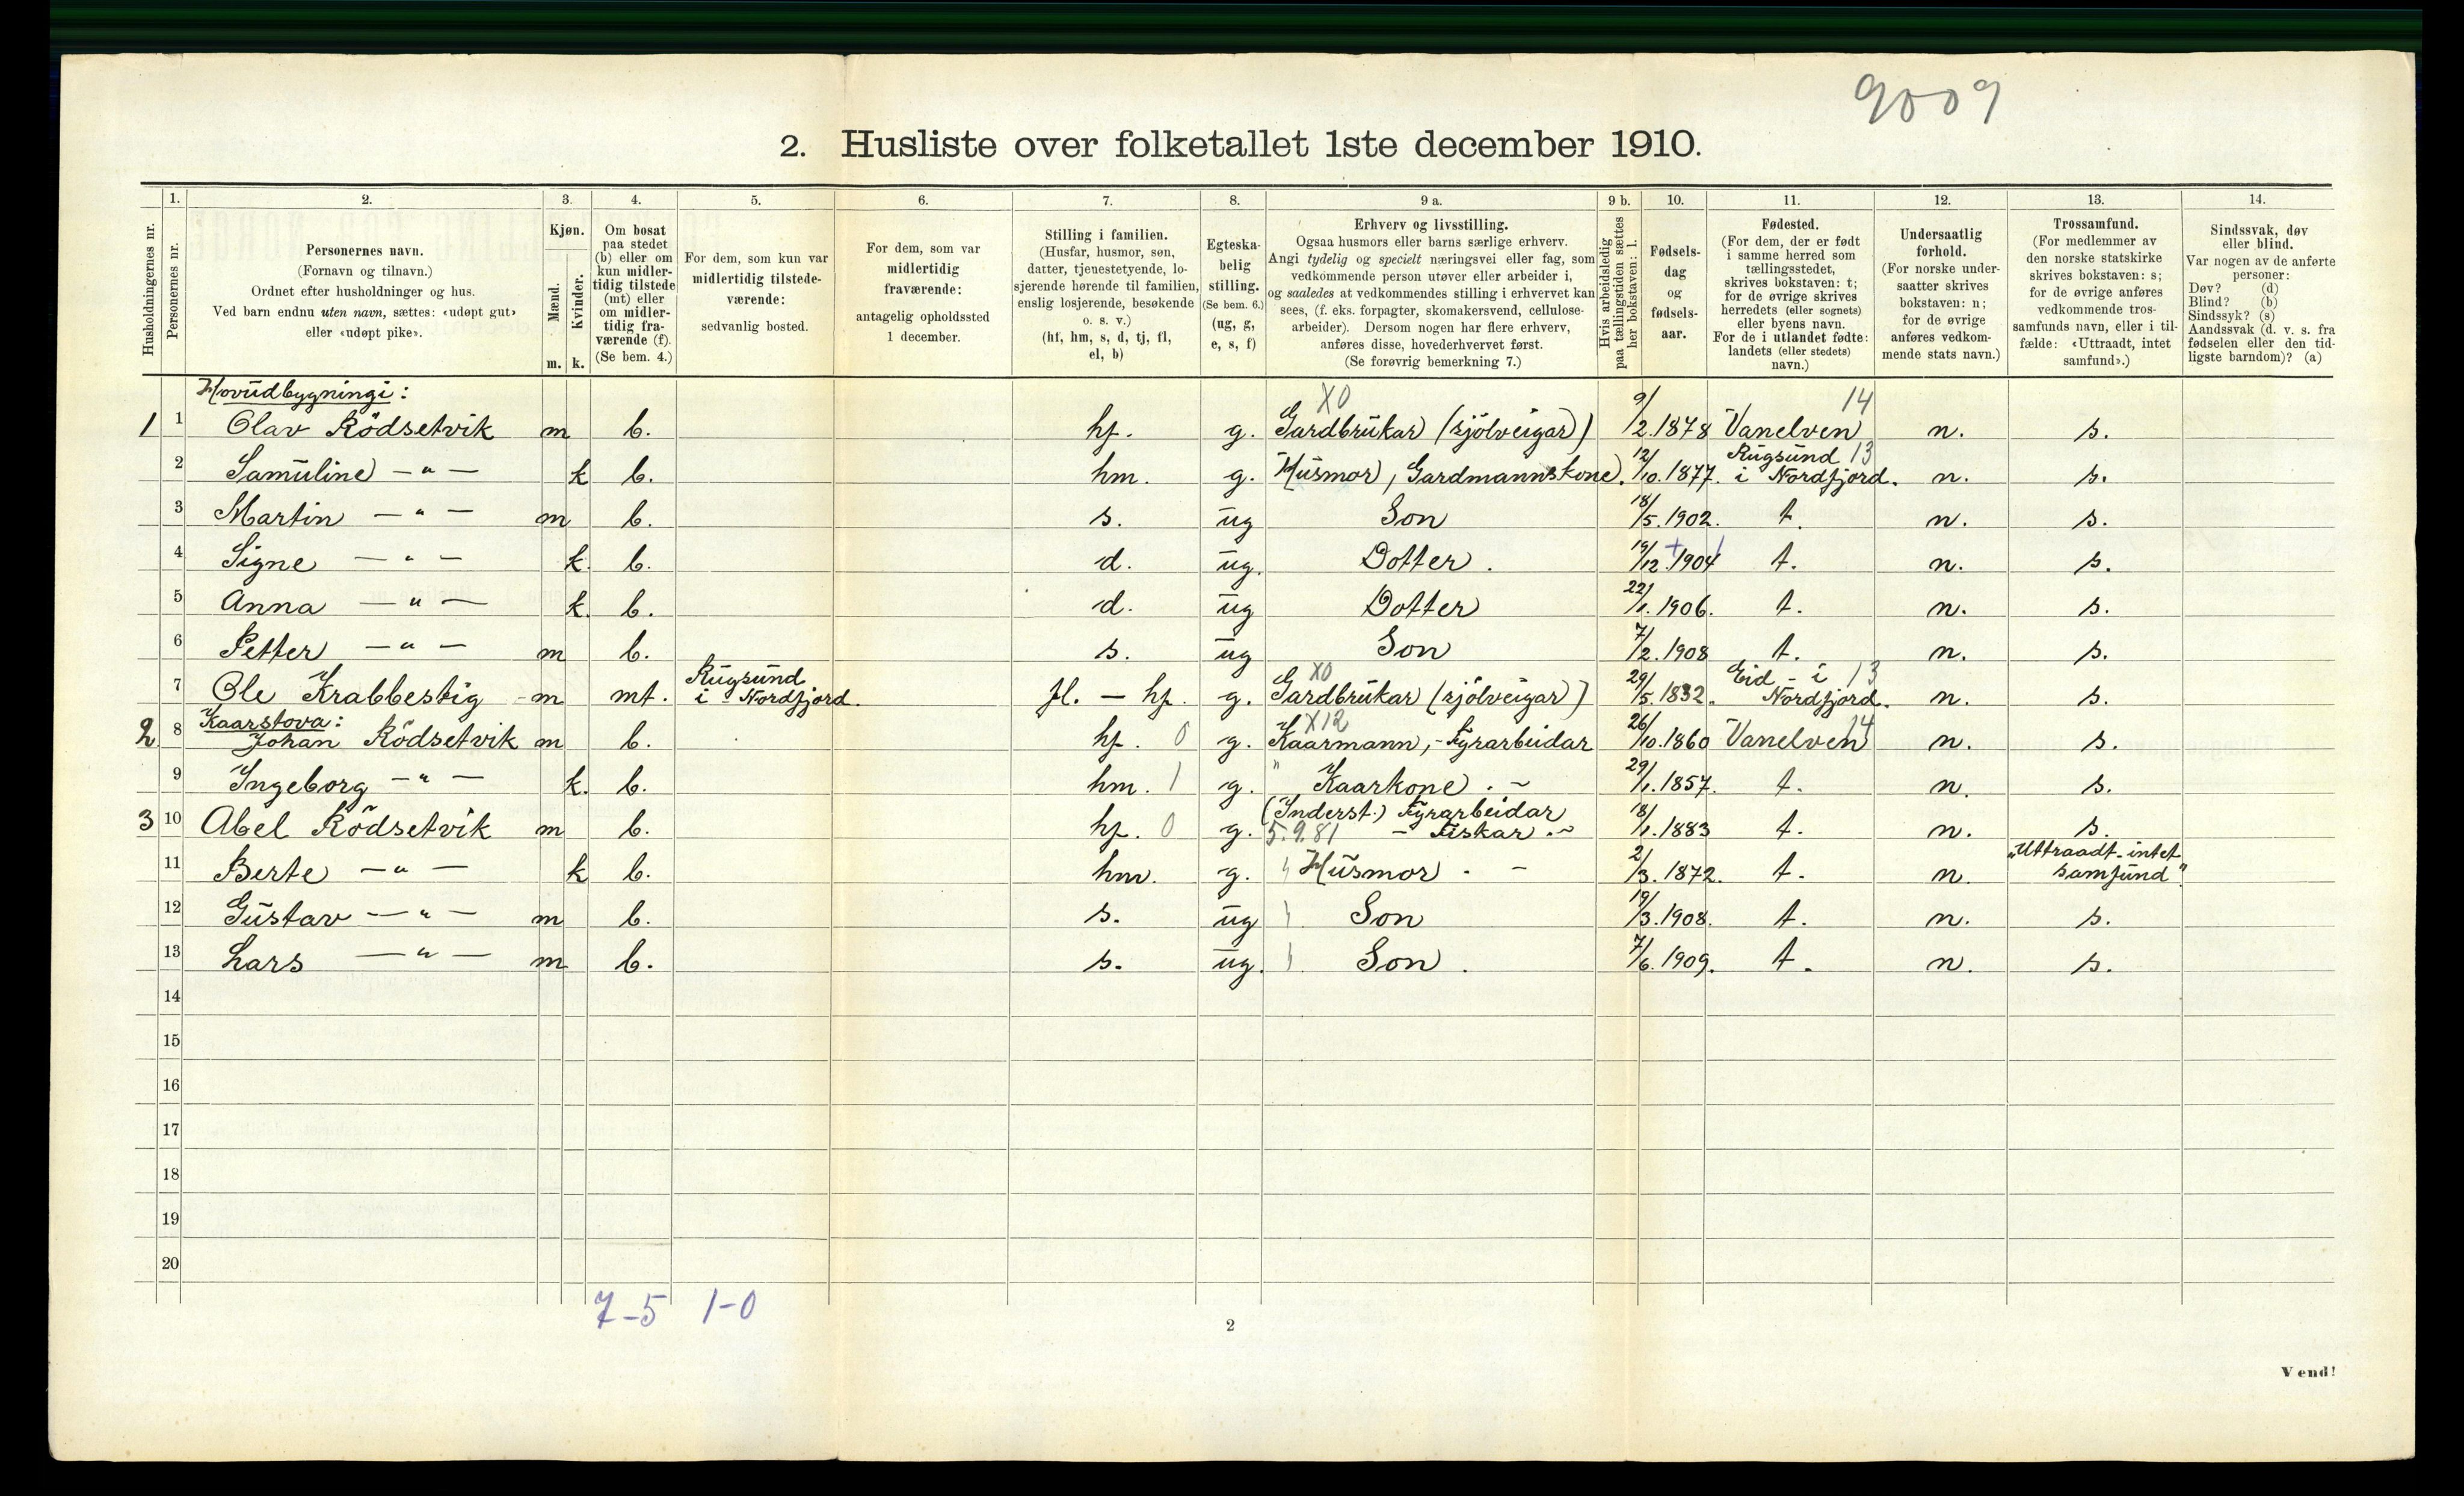 9009
2. Husliste over folketallet 1ste december 1910.
Husholdningernes nr.
1.
Personernes nr.
2.
Personernes navn.
(Fornavn og tilnavn.)
Ordnet efter husholdninger og hus.
Ved barn endnu uten navn, sættes: «udøpt gut»
eller «udøpt pike».
3.
Kjøn.
Mænd.
Kvinder.
m. k.
4.
Om bosat
paa stedet
(b) eller om
kun midler-
tidig tilstede
(mt) eller
om midler-
tidig fra-
værende (f).
(Se bem. 4.)
5.
For dem, som kun var
midlertidig tilstede-
værende:
sedvanlig bosted.
6.
For dem, som var
midlertidig
fraværende:
antagelig opholdssted
1 december.
7.
Stilling i familien.
(Husfar, husmor, søn,
datter, tjenestetyende, lo-
sjerende hørende til familien,
enslig losjerende, besøkende
o. s. v.)
(hf, hm, s, d, tj, fl,
el, b)
8.
Egteska-
belig
stilling.
(Se bem. 6.)
(ug, g,
e, s, f)
9 a.
Erhverv og livsstilling.
Ogsaa husmors eller barns særlige erhverv.
Angi tydelig og specielt næringsvei eller fag, som
vedkommende person utøver eller arbeider i,
og saaledes at vedkommendes stilling i erhvervet kan
sees, (f. eks. forpagter, skomakersvend, cellulose-
arbeider). Dersom nogen har flere erhverv,
anføres disse, hovederhvervet først.
(Se forøvrig bemerkning 7.)
9 b.
Hvis arbeidsledig
paa tællingstiden sættes
her bokstaven: l.
10.
Fødsels-
dag
og
fødsels-
aar.
11.
Fødested.
(For dem, der er født
i samme herred som
tællingsstedet,
skrives bokstaven: t;
for de øvrige skrives
herredets (eller sognets)
eller byens navn.
For de i utlandet fødte:
landets (eller stedets)
navn.)
12.
Undersaatlig
forhold.
(For norske under-
saatter skrives
bokstaven: n;
for de øvrige
anføres vedkom-
mende stats navn.)
13.
Trossamfund.
(For medlemmer av
den norske statskirke
skrives bokstaven: s;
for de øvrige anføres
vedkommende tros-
samfunds navn, eller i til-
fælde: «Uttraadt, intet
samfund».)
14.
Sindssvak, døv
eller blind.
Var nogen av de anførte
personer:
Døv? (d)
Blind? (b)
Sindssyk? (s)
Aandssvak (d. v. s. fra
fødselen eller den tid-
ligste barndom)? (a)
Hovudbygningi:
1 1 Olav Rödsetvik m b. hf. g. X0 Gardbrukar (sjölveigar) 9/2.1878 Vanelven 14 n. s.
2 Samuline — " — k b. hm. g. Husmor, Gardmannskone. 12/10.1877. Rugsund 13 i Nordfjord. n. s.
3 Martin — " — m b. s. ug Son 18/5.1902. t. n. s.
4 Signe — " — k. b. d. ug. Dotter. 19/12.1904 t. n. s.
5 Anna — " — k. b. d. ug Dotter 22/1.1906. t. n. s.
6 Petter — " — m b. s. ug Son 7/2.1908 t. n. s.
7 Ole Krabbestig m mt. Rugsund i Nordfjord. fl. — hf. g. X0 Gardbrukar (sjölveigar) 29/5.1832. Eid i 13 Nordfjord. n. s.
Kaarstova:
2 8 Johan Rödsetvik m b. hf. 0 g. X12 Kaarmann, - Fyrarbeidar 26/10.1860 Vanelven 14 n. s.
9 Ingeborg — " — k. b. hm. 1 g. " Kaarkone. 29/1.1857. t. n. s.
3 10 Abel Rödsetvik m b. hf. 0 g. (Inderst.) Fyrarbeidar 5.9.81 - Fiskar. 18/1.1883 t. n. s.
11 Berte — " — k b. hm. g. Husmor. 2/3.1872. t. n. „Uttraadt - intet samfund"
12 Gustav — " — m b. s. ug Son 19/3.1908. t. n. s.
13 Lars — " — m b. s. ug. Son. 7/6.1909. t. n. s.
14
15
16
17
18
19
20
7-5 1-0
2
Vend!